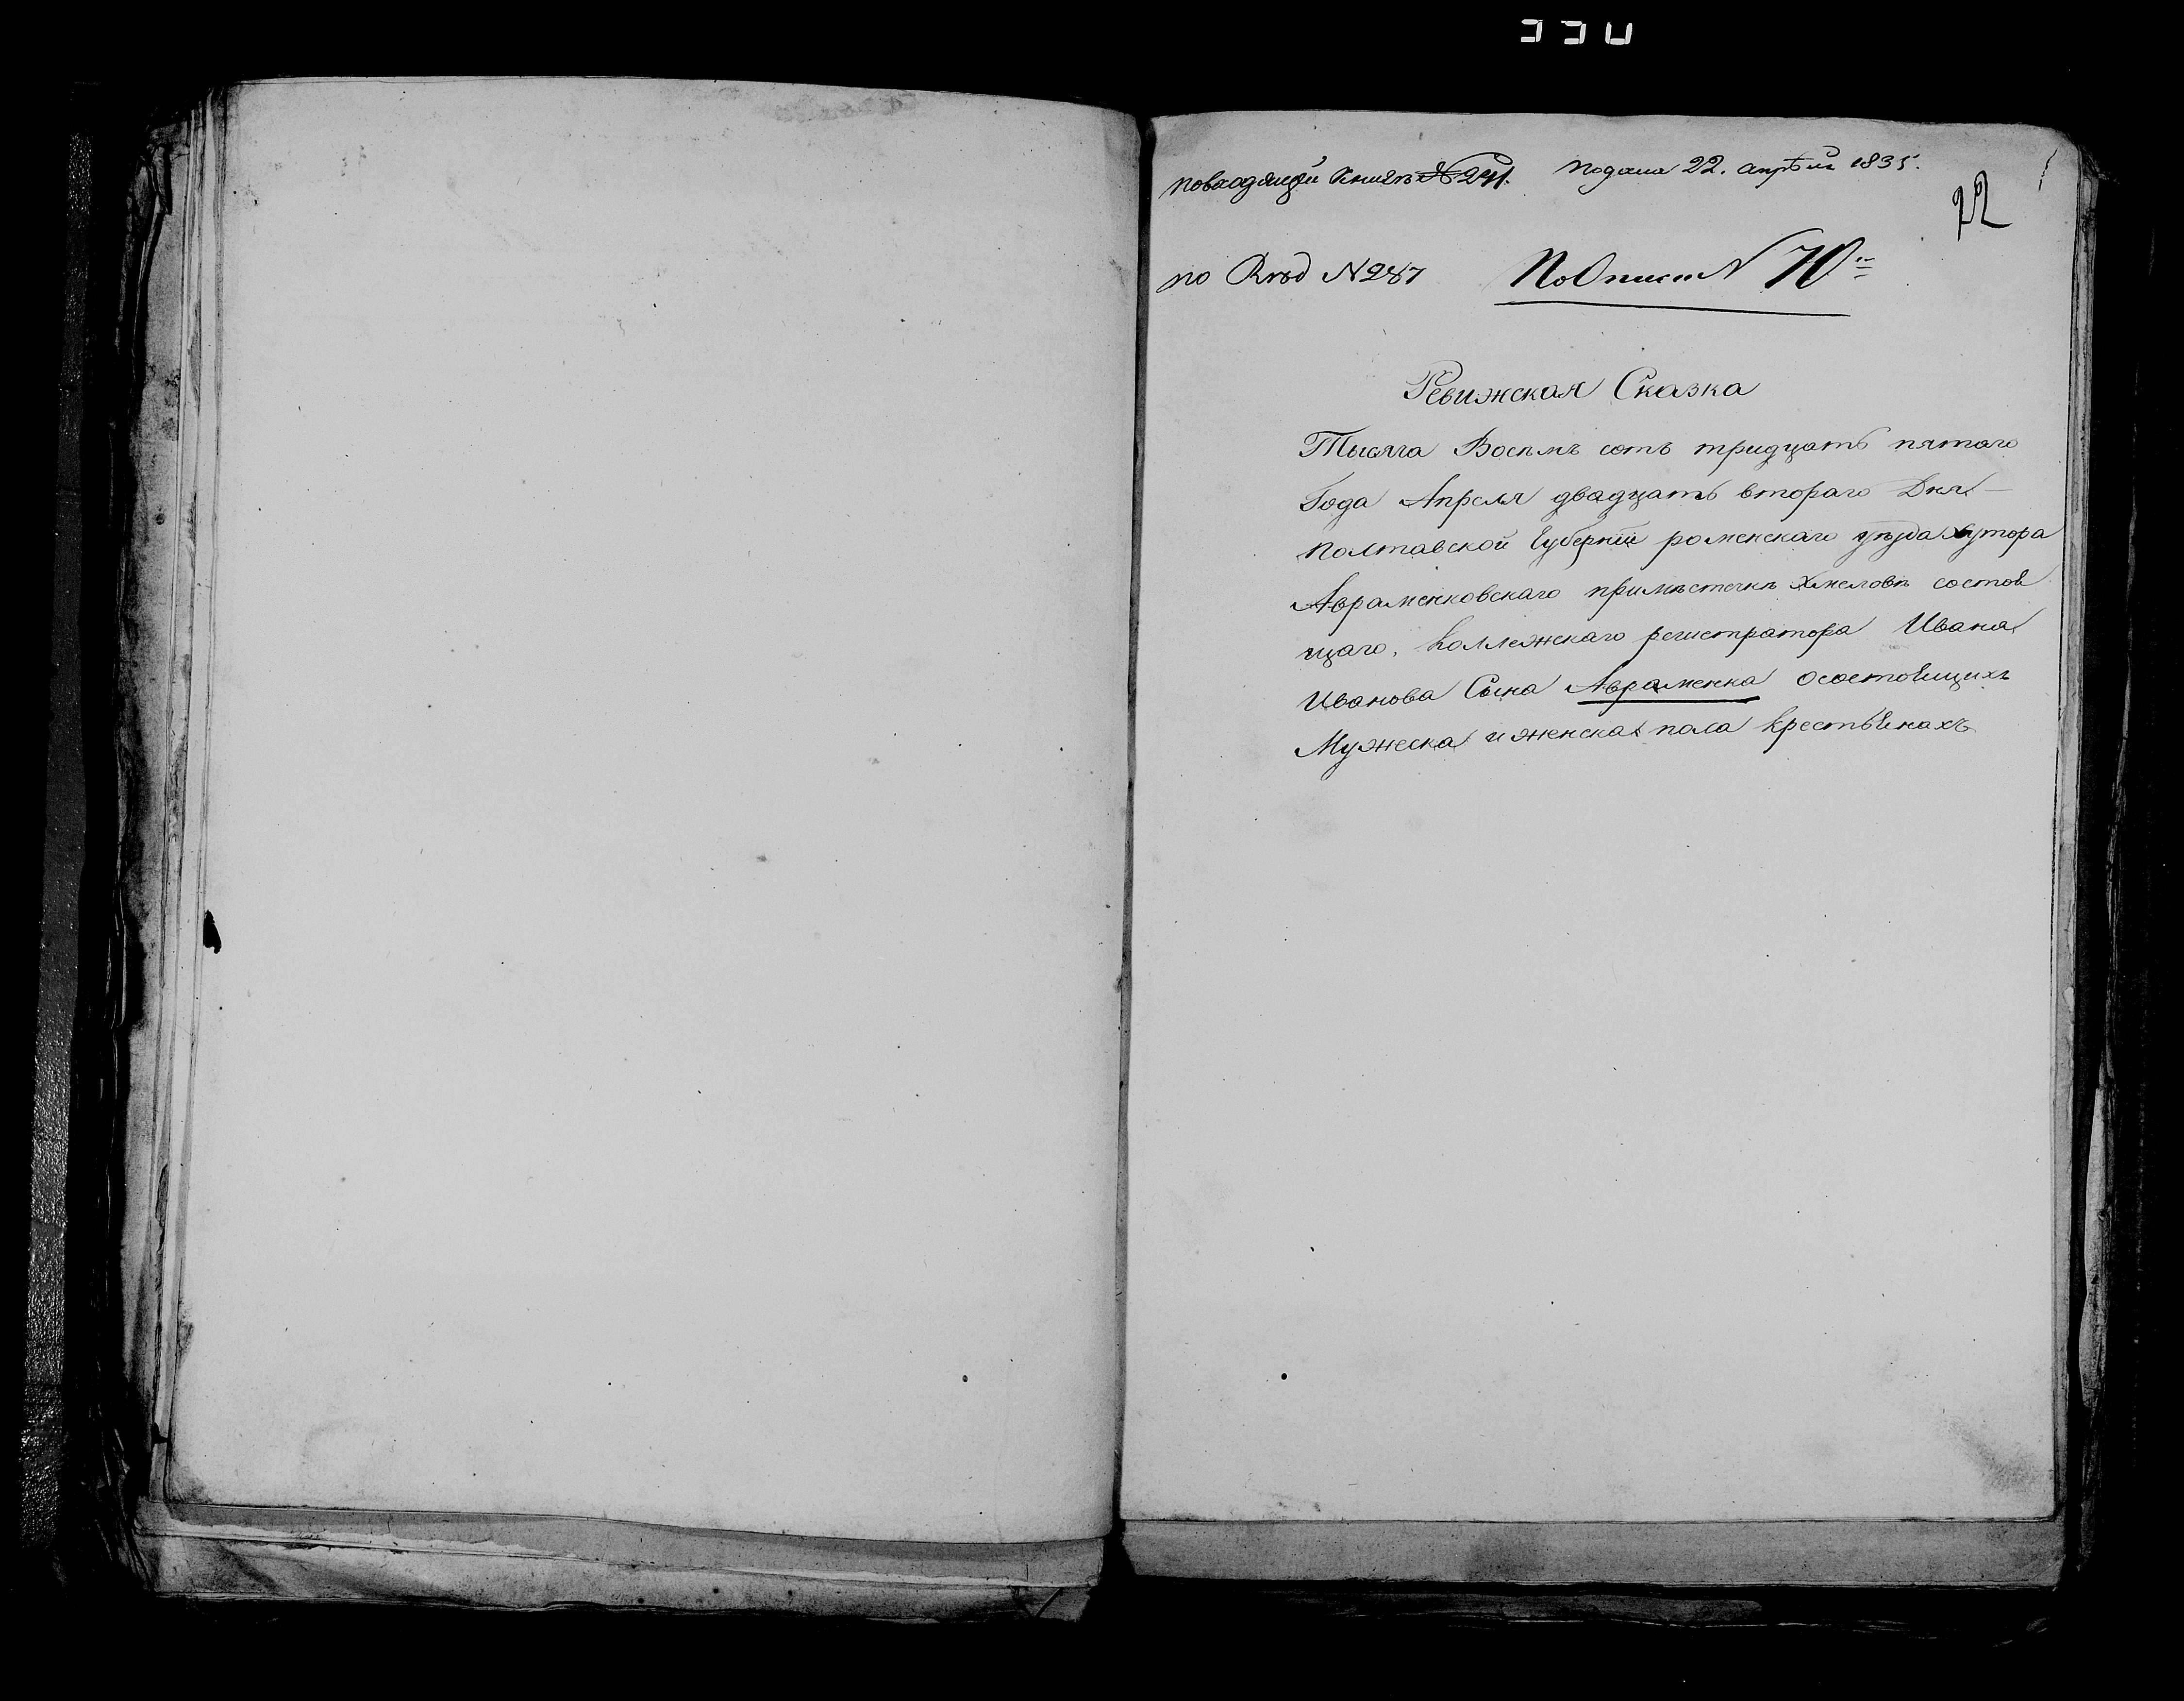 повходящей книгѣ № 241. подана 22. апрѣля 1835.
22
по № 287 По Описи N 70
Ревижская Сказка
Тысяча Восемъ сотъ тридцать пятаго
Года Апреля двадцать втораго Дня —
полтавской Губерніи роменскаго уѣзда хутора
Авраменковскаго примѣстечкѣ хмеловѣ состоя
щаго, коллежскаго регистратора Ивана
Иванова Сына Авраменка осостоящихъ
Мужеска и женска пола крестьянахъ